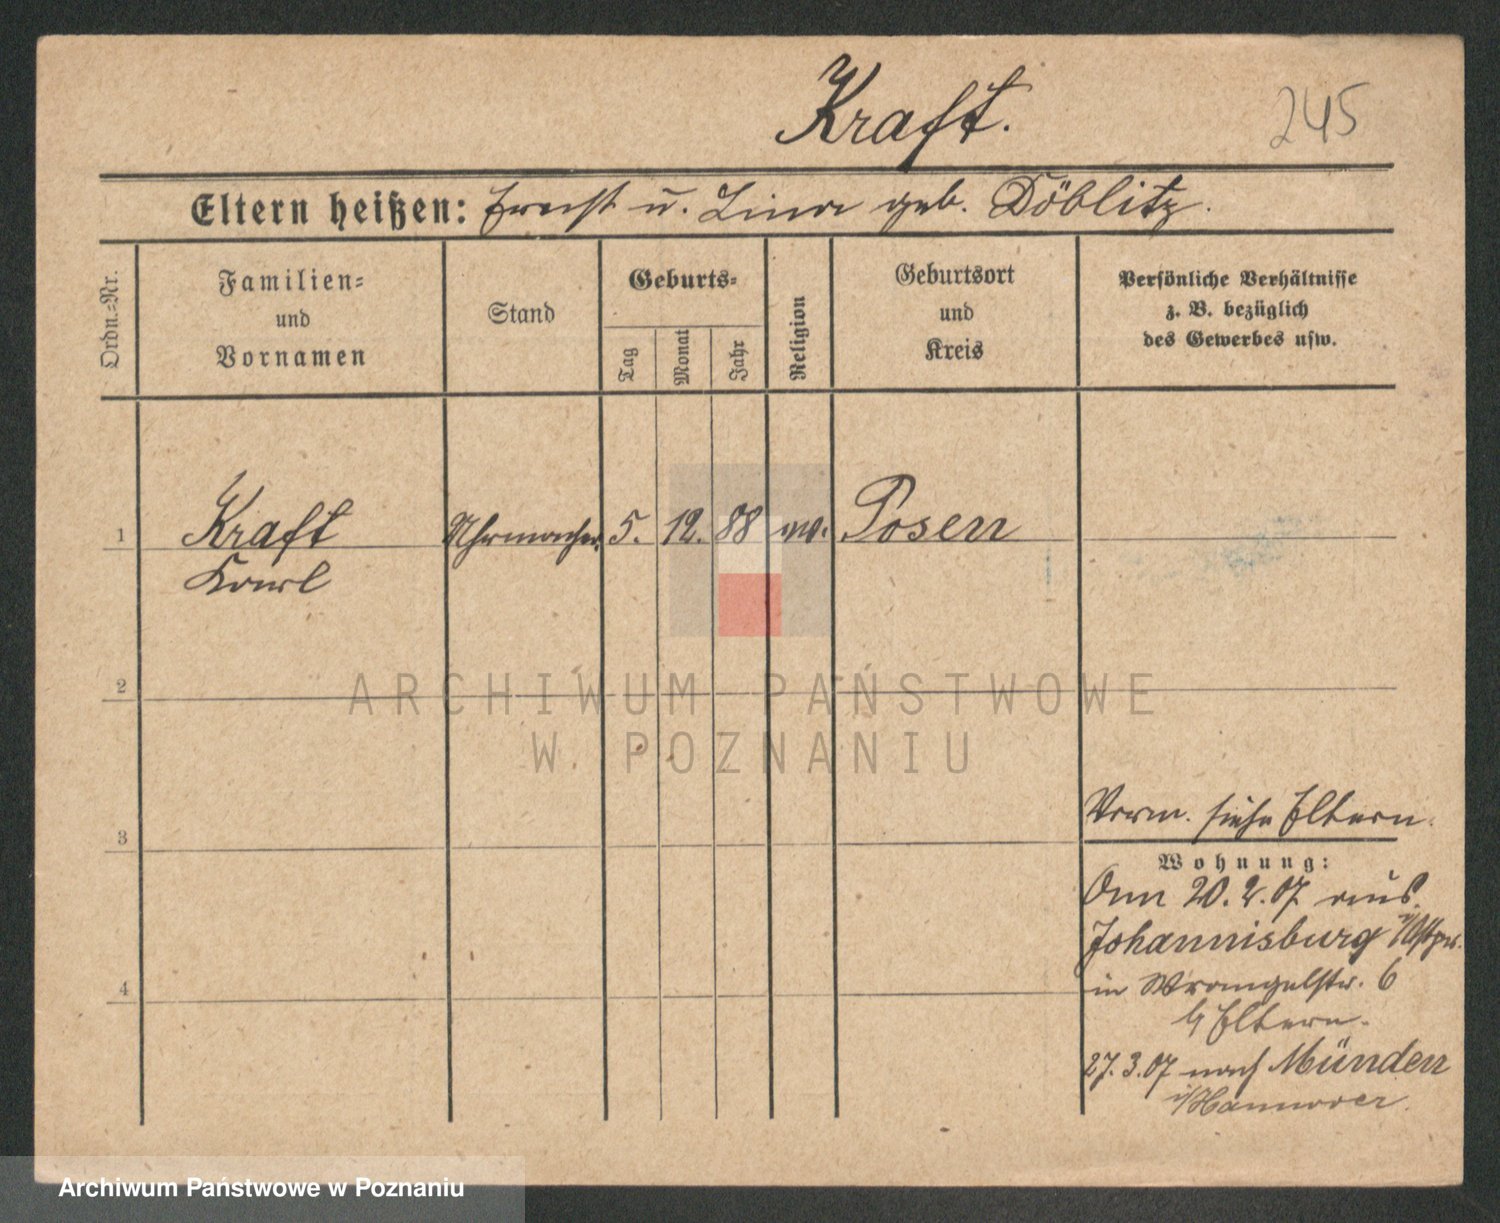 Kraft.
245
Eltern heißen: Ernst u. Lina geb. Döblitz.
Ordn.=Nr.
Familien=
und
Vornamen
Stand
Geburts=
Tag
Monat
Jahr
Religion
Geburtsort
und
Kreis
Persönliche Verhältnisse
z. B. bezüglich
des Gewerbes usw.
1
Kraft
Karl
Uhrmacher
5.
12.
88
ev.
Posen
2
ARCHIWUM PAŃSTWOWE
W POZNANIU
3
Vorm. siehe Eltern.
Wohnung:
4
Am 20.2.07 aus
Johannisburg i/Ostpr.
in Wrangelstr. 6
b/ Eltern.
27.3.07 nach Münden
i/Hannover.
Archiwum Państwowe w Poznaniu